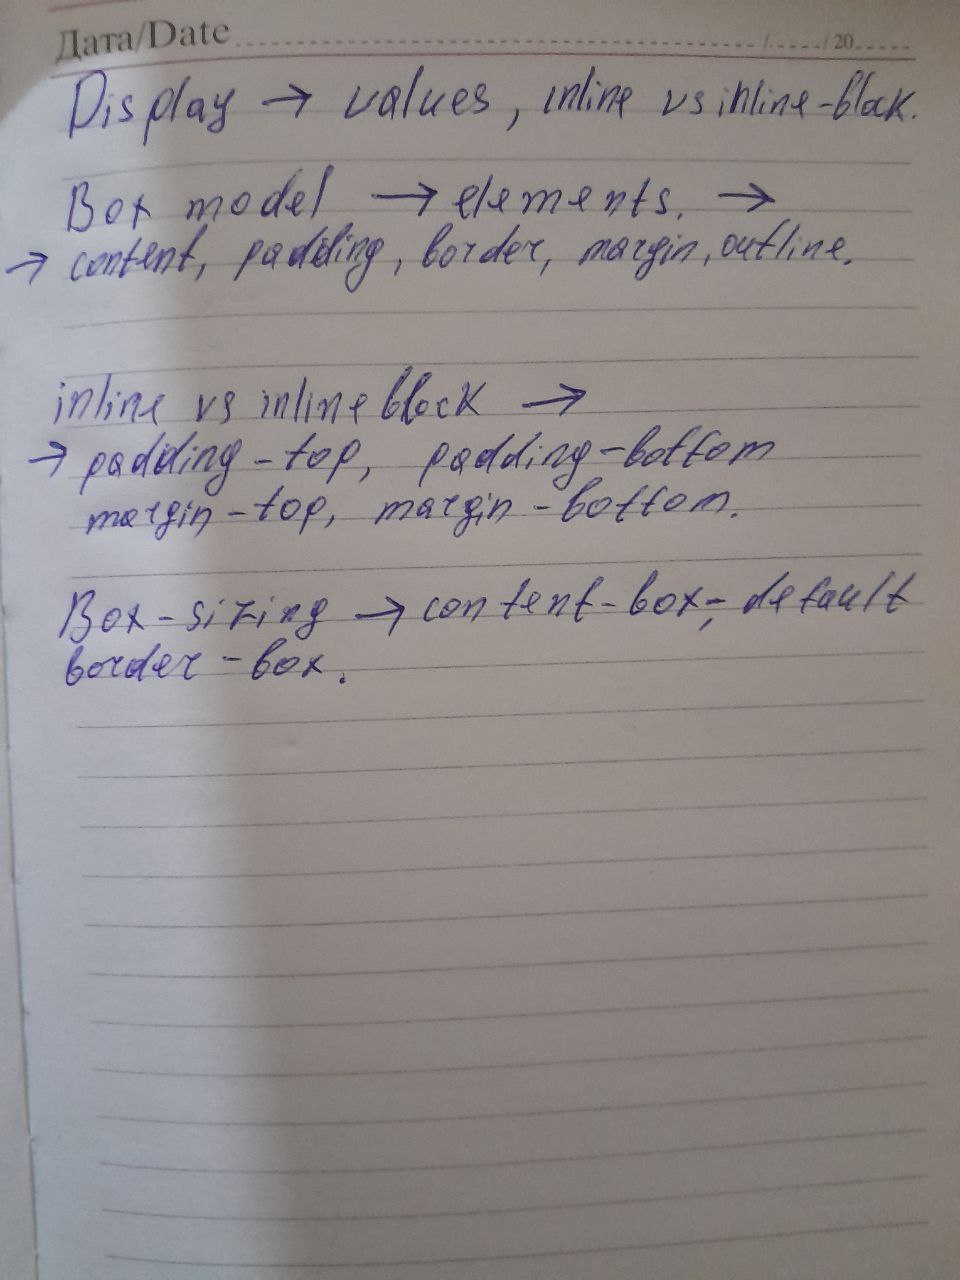 Дата/Date ................ /...../ 20......
Display → values, inline vs inline-block.
Box model → elements. →
→ content, padding, border, margin, outline.
inline vs inline block →
→ padding-top, padding-bottom
margin-top, margin-bottom.
Box-sizing → content-box-, default
border-box.